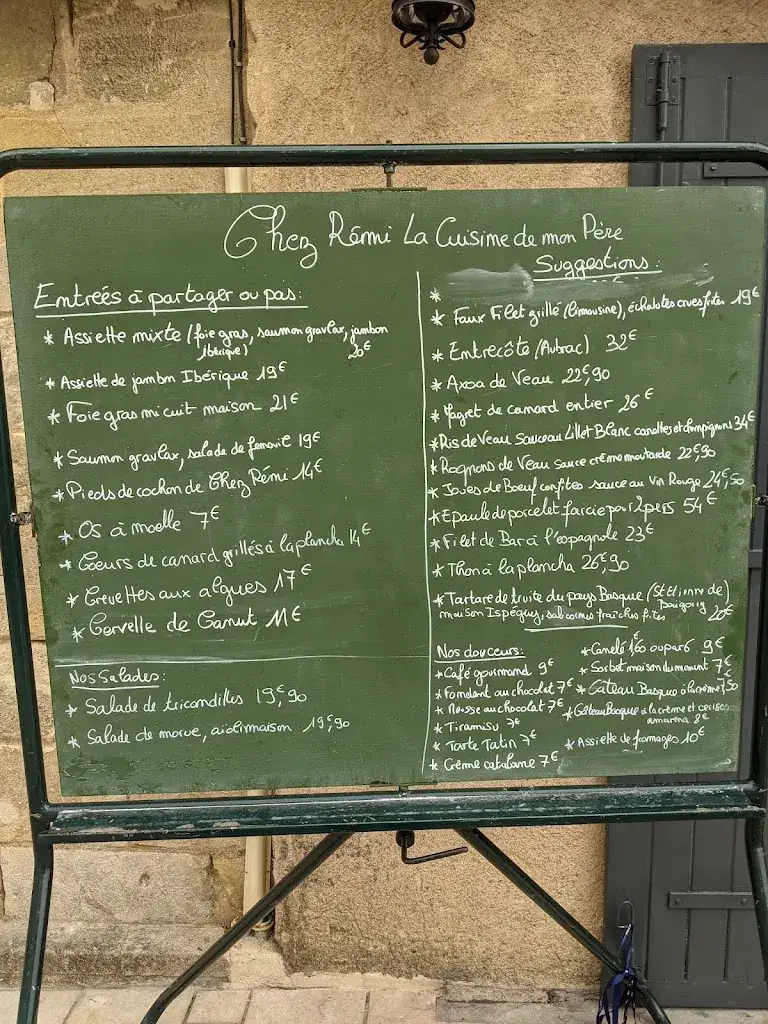 Chez Rémi La Cuisine de mon Père
Entrées à partager ou pas:
* Assiette mixte (foie gras, saumon gravlax, jambon
ibérique) 20€
* Assiette de jambon Ibérique 19€
* Foie gras mi cuit maison 21€
* Saumon gravlax, salade de fenouil 19€
* Pieds de cochon de Chez Rémi 14€
* Os à moelle 7€
* Coeurs de canard grillés à la plancha 14€
* Crevettes aux algues 17€
* Cervelle de Canut 11€
Nos Salades:
* Salade de tricandilles 19€,90
* Salade de morue, aïoli maison 19€,90
Suggestions:
*
* Faux Filet grillé (limousine), échalotes crues frites 19€
* Entrecôte (Aubrac) 32€
* Axoa de Veau 22€,90
* Magret de canard entier 26€
* Ris de Veau sauce au Lillet Blanc carottes et champignons 34€
* Rognons de Veau sauce crème moutarde 22€,90
* Joues de Boeuf confites sauce au Vin Rouge 24€,50
* Epaule de porcelet farcie pour 2 pers 54€
* Filet de Bar à l'espagnole 23€
* Thon à la plancha 26€,90
* Tartare de truite du pays Basque (St Etienne de
maison Ispéguy, salicornes fraîches frites 20€
Nos douceurs:
* Café gourmand 9€
* Fondant au chocolat 7€
* Mousse au chocolat 7€
* Tiramisu 7€
* Tarte Tatin 7€
* Crème catalane 7€
* Canelé 1€,60 ou par 6 9€
* Sorbet maison du moment 7€
* Gâteau Basque à la crème 7€,50
* Gâteau Basque à la crème et cerises
amarena 8€
* Assiette de fromages 10€